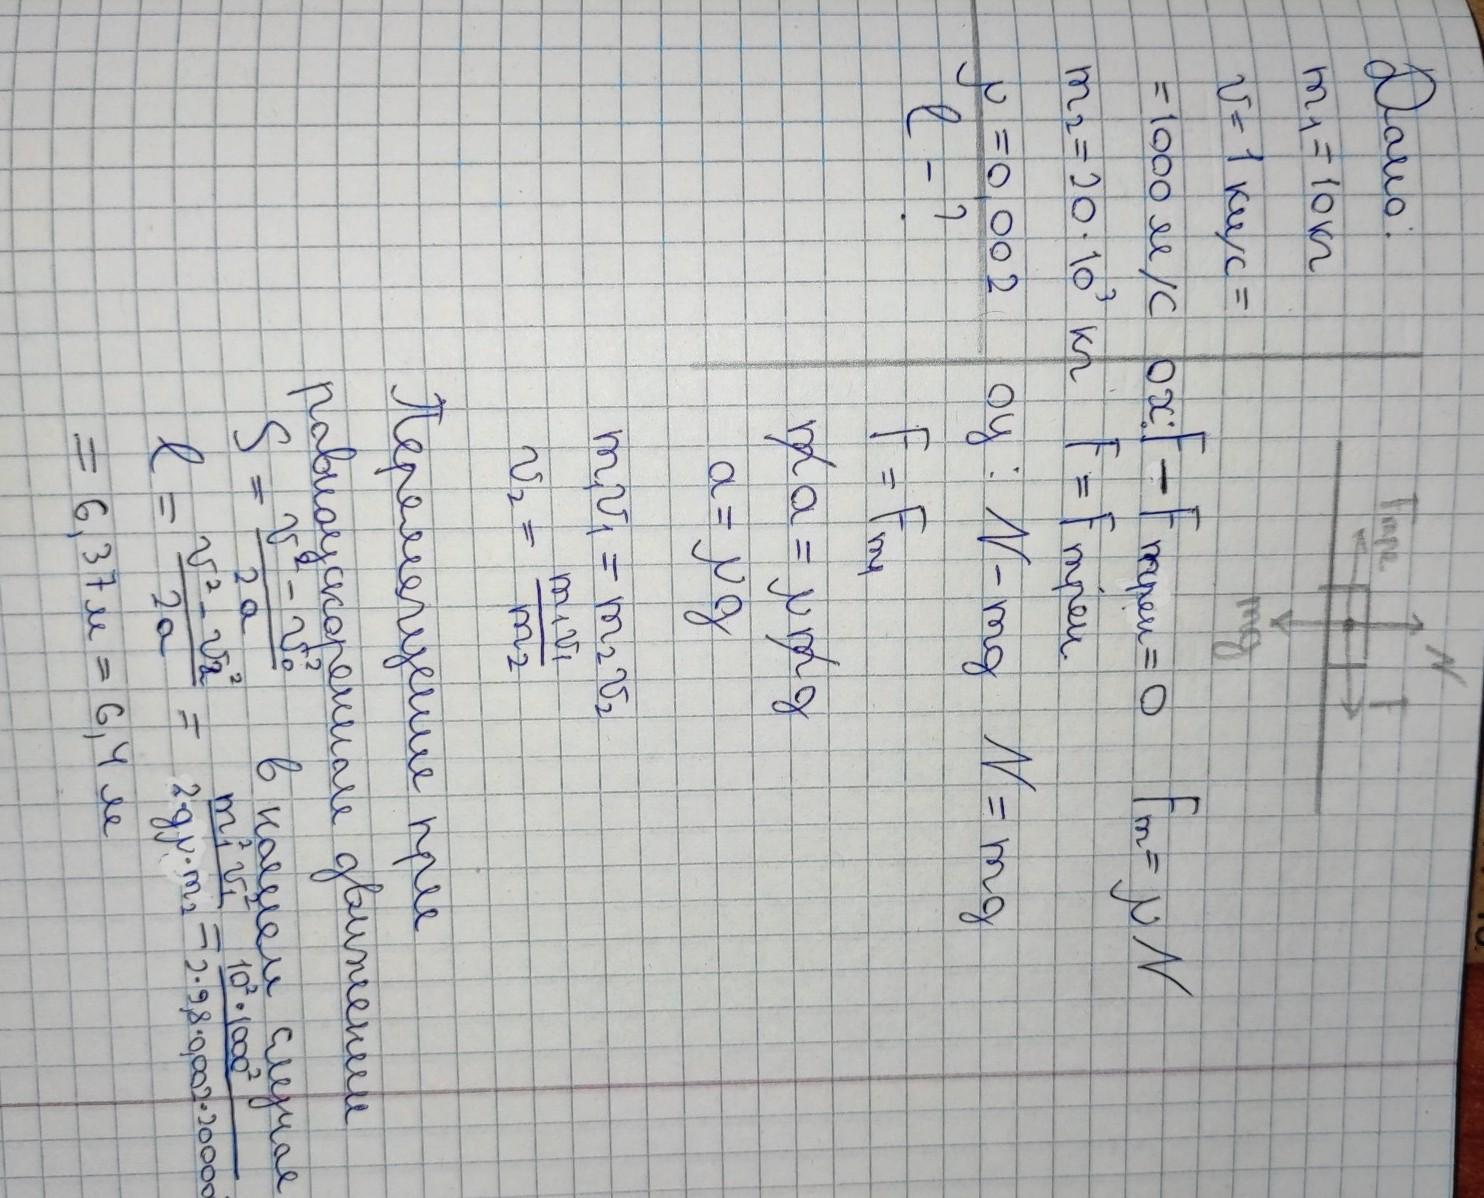 Дано:
m₁ = 10 кг
v = 1 км/с =
= 1000 м/с
m₂ = 20·10³ кг
μ = 0,002
l - ?
N
F
Fтр
mg
ox: F - Fтрен = 0 Fт = μN
F = Fтрен
oy: N - mg N = mg
F = Fт
ma = μmg
a = μg
m₁v₁ = m₂v₂
v₂ = m₁v₁/m₂
Перемещение при
равноускореннам движении
S = (v² - v₀²)/2a в нашем случае
l = (v² - v₂²)/2a = m₁²v₁²/(2gμ·m₂) = 10²·1000²/(2·9,8·0,002·20000
= 6,37м = 6,4 м